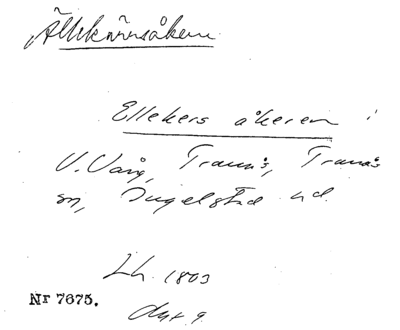 Ällekärrsåkern
Ellekers åkeren i
V. Vång, Tranås, Tranås
sn, Ingelstad hd.
Lh. 1803
Nr 7675.
akt 9.